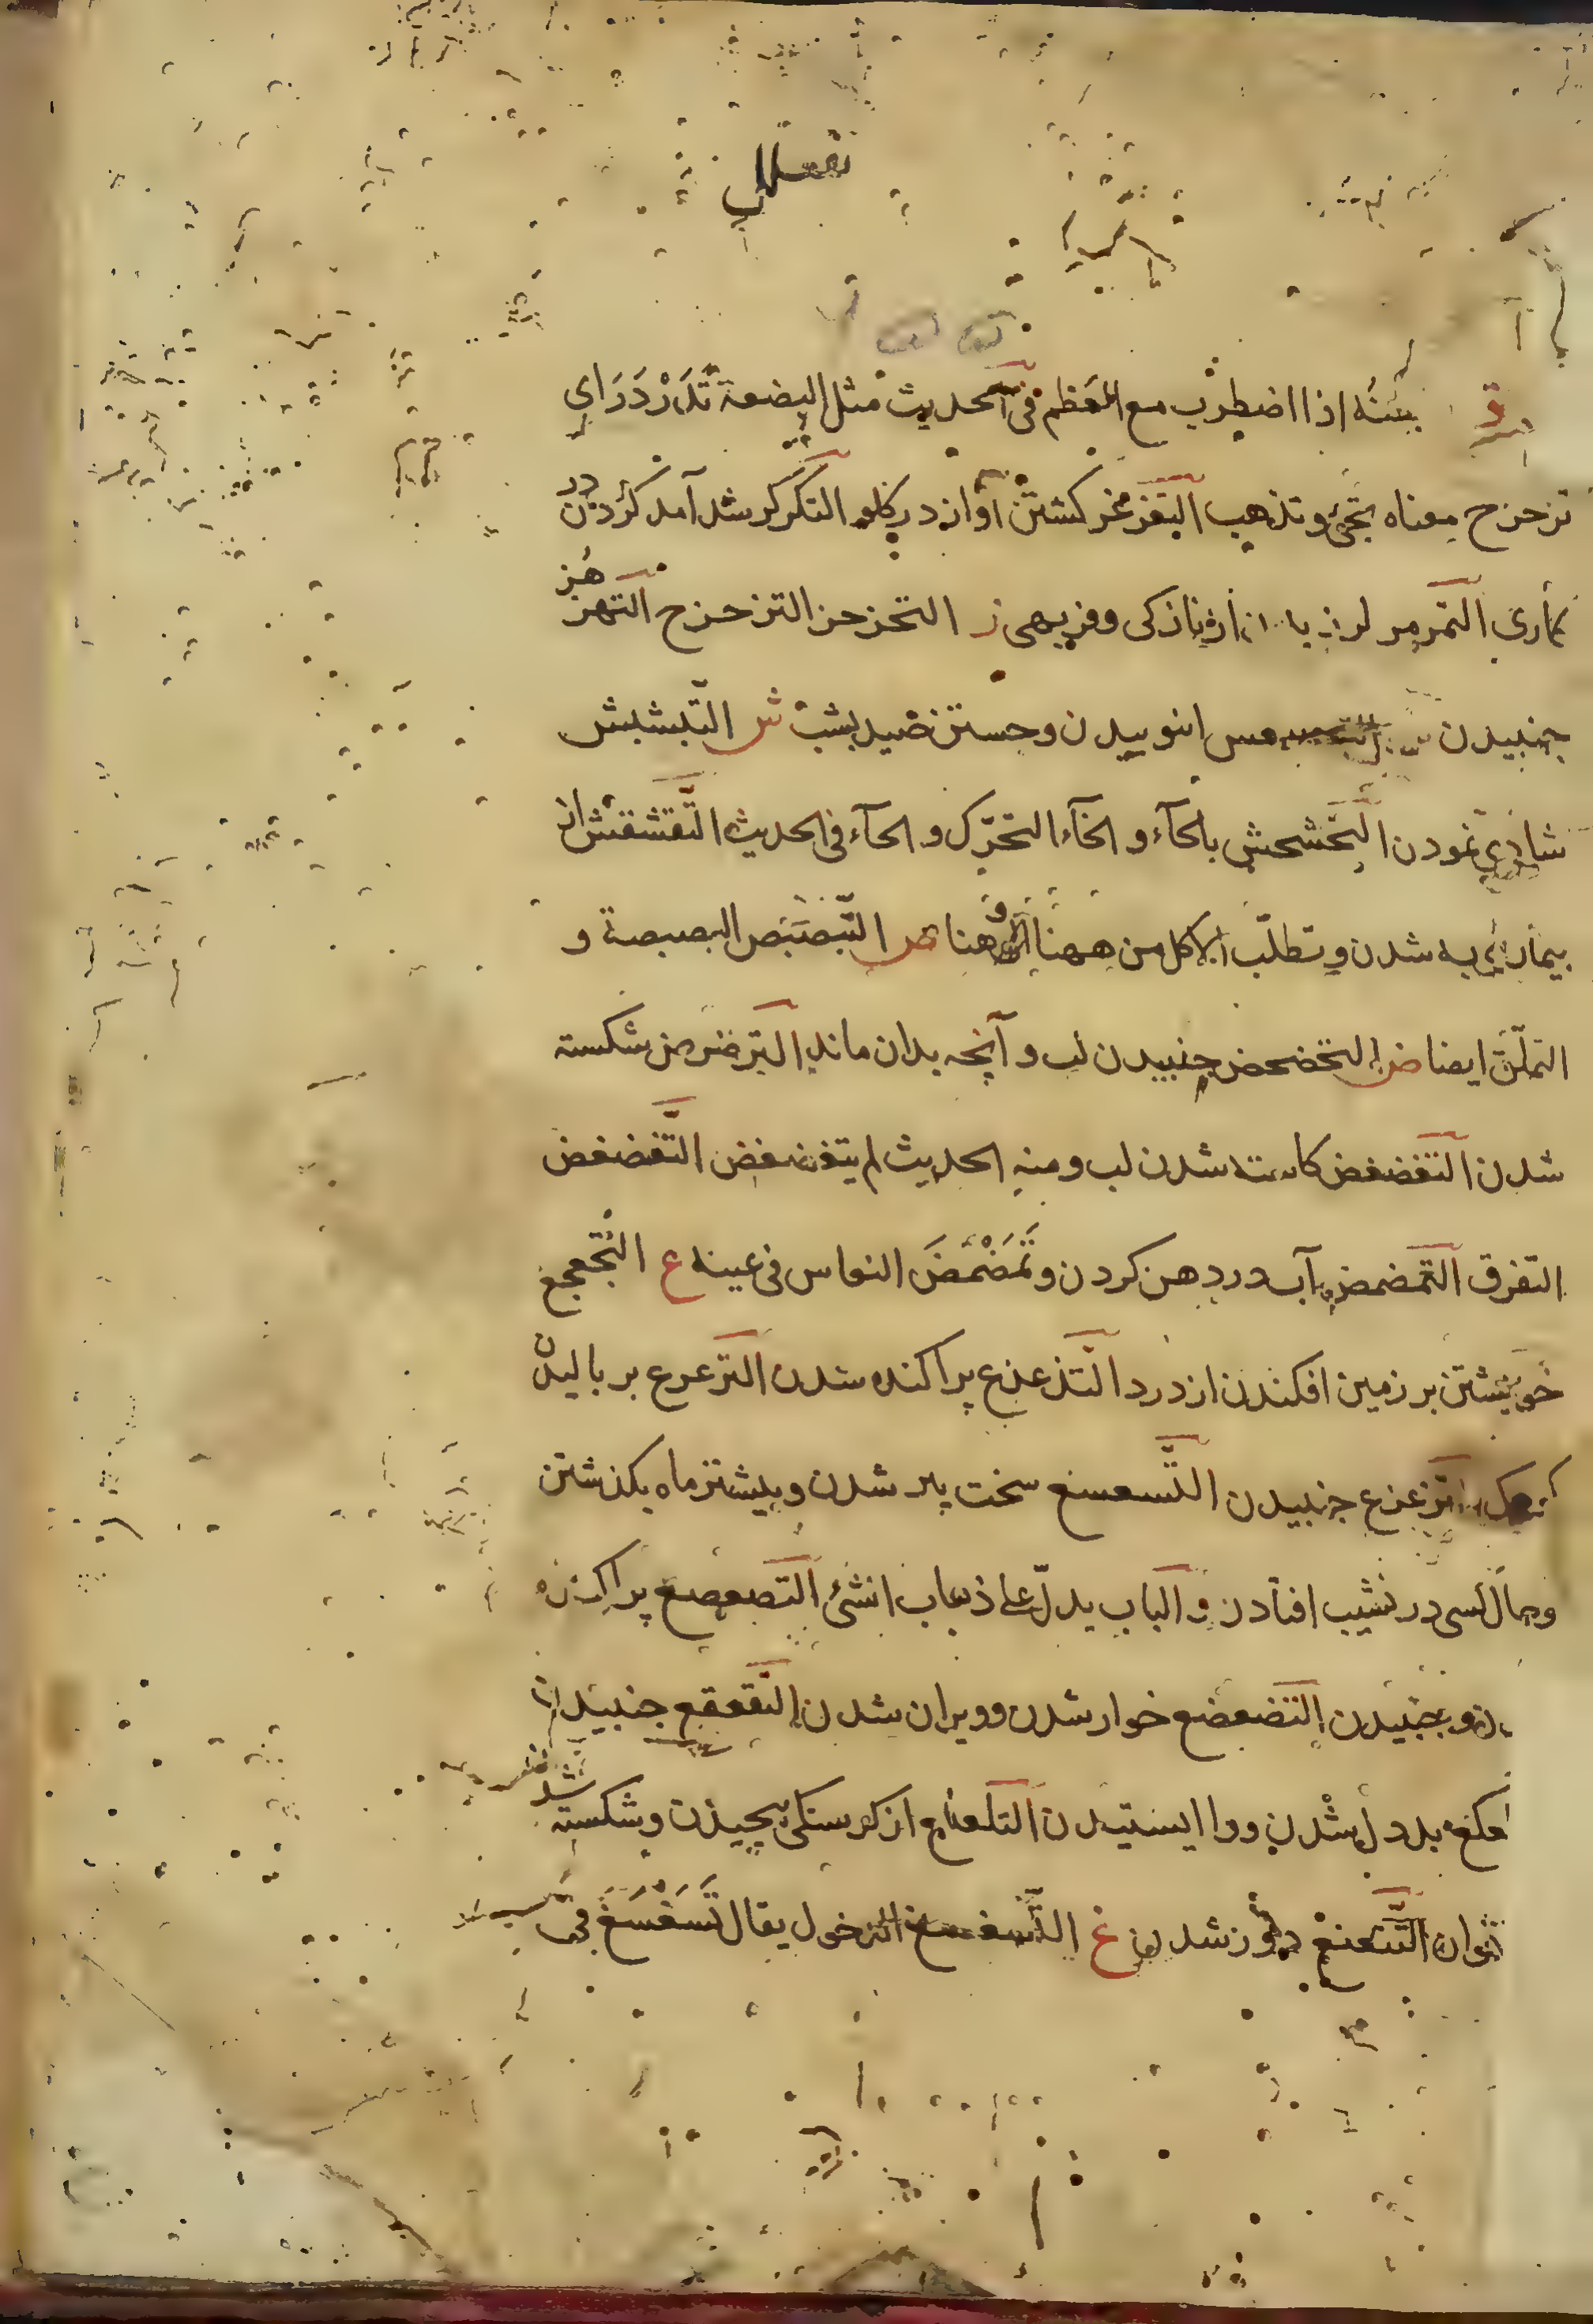 تفعلل
بينه اذا اضطرب مع العظم فى الحديث مثل البضعة تَدَرْدَرَ اي
تزحزح معناه تجئ وتذهب التغرغر كشتن آواز در كلو التكركر شد آمد كردن در
كارى التمرمر از نازكى وفربهى ز التحزحز التزحزح التهزهز
جنبيدن س انبوييدن وجستن خبر بشب ش التبشبش
شادى نمودن التحشحش بالحآء والخآء التحرّك والحآء فى الحديث التقشقش از
بيمارى به شدن وتطلّب الاكل من ههنا وههنا ص التبصبص البصبصة و
التملّق ايضا ض التحضحض جنبيدن لب و آنچه بدان ماند الترضرض شكسته
شدن التغضغض كاسته شدن لب ومنه الحديث لم يتغضغض التفضفض
التفرق التمضمض آب در دهن كردن وتَمَضْمَضَ النعاس فى عينه ع التجعجع
خويشتن بر زمين افكندن از درد التذعذع پراكنده شدن الترعرع بر باليدن
كودك التزعزع جنبيدن التسعسع سخت پير شدن وبيشتر ماه بكذشتن
وحال كسى در نشيب افتادن والباب يدلّ على ذهاب الشئ التصعصع پراكنده
شدن وبجنبيدن التضعضع خوار شدن وويران شدن التقعقع جنبيدن
بد دل شدن ووا ايستيدن التلعلع از كرسنكى پيچيدن وشكسته شد
استخوان التنعنع دور شدن غ التسغسغ الدخول يقال تَسَغْسَغَ فى